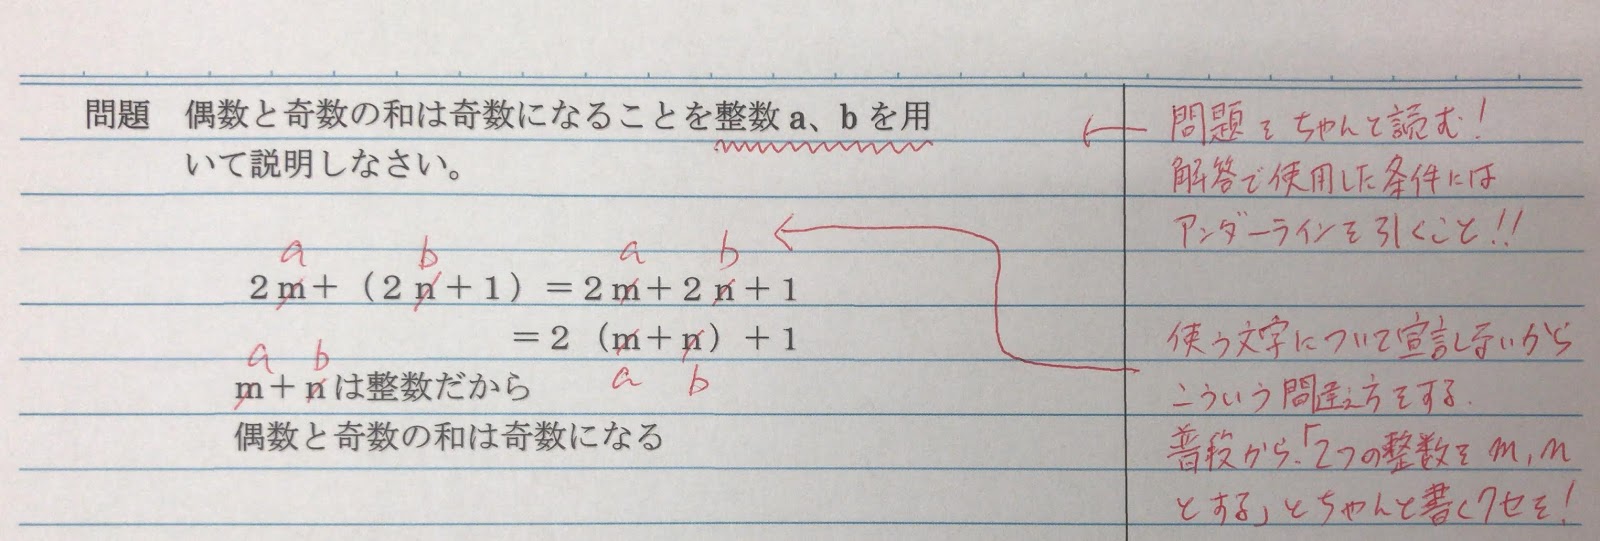 問題 偶数と奇数の和は奇数になることを整数 a、b を用
いて説明しなさい。
a b a b
2m+(2n+1)=2m+2n+1
=2(m+n)+1
a b
a b
m+nは整数だから
偶数と奇数の和は奇数になる
← 問題をちゃんと読む!
解答で使用した条件には
アンダーラインを引くこと!!
使う文字について宣言しないから
こういう間違え方をする.
普段から、「2つの整数を m, n
とする」とちゃんと書くクセを!